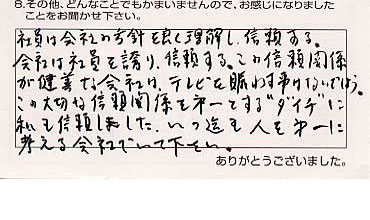 8.その他、どんなことでもかまいませんので、お感じになりました
ことをお聞かせ下さい。
社員は会社の方針を良く理解し、信頼する。
会社は社員を誇り、信頼する。この信頼関係
が健善な会社は、テレビを賑わす事はないだろう。
この大切な信頼関係を第一とする"ダイチ"に
私も信頼しました。いつ迄も人を第一に
考える会社でいて下さい。
ありがとうございました。